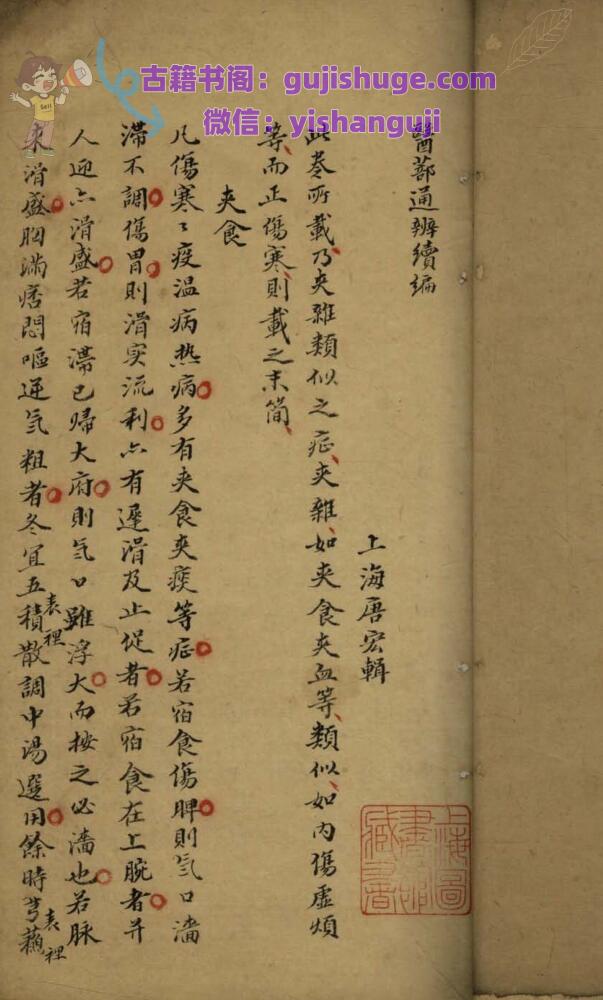 古籍书阁：gujishuge.com
微信：yishanguji
醫鄣通辨續编
上海唐宏輯
此卷所載乃夾雜類似之症夾雜如夾食夾血等類似如内傷虛煩
等而正傷寒則載之末簡
夾食
凡傷寒〻疫温病热病多有夾食夾痰等症若宿食傷脾則氣口濇
滞不調傷胃則滑实流利亦有遲滑及止促者若宿食在上脘者并
人迎亦滑盛若宿滯已歸大府則氣口雖浮大而按之必濇也若脉
来滑盛胸满痞悶嘔逆氣粗者冬宜五積散調中湯選用餘時芎蘓
表裡
表裡
上海圖書館藏書
Sell